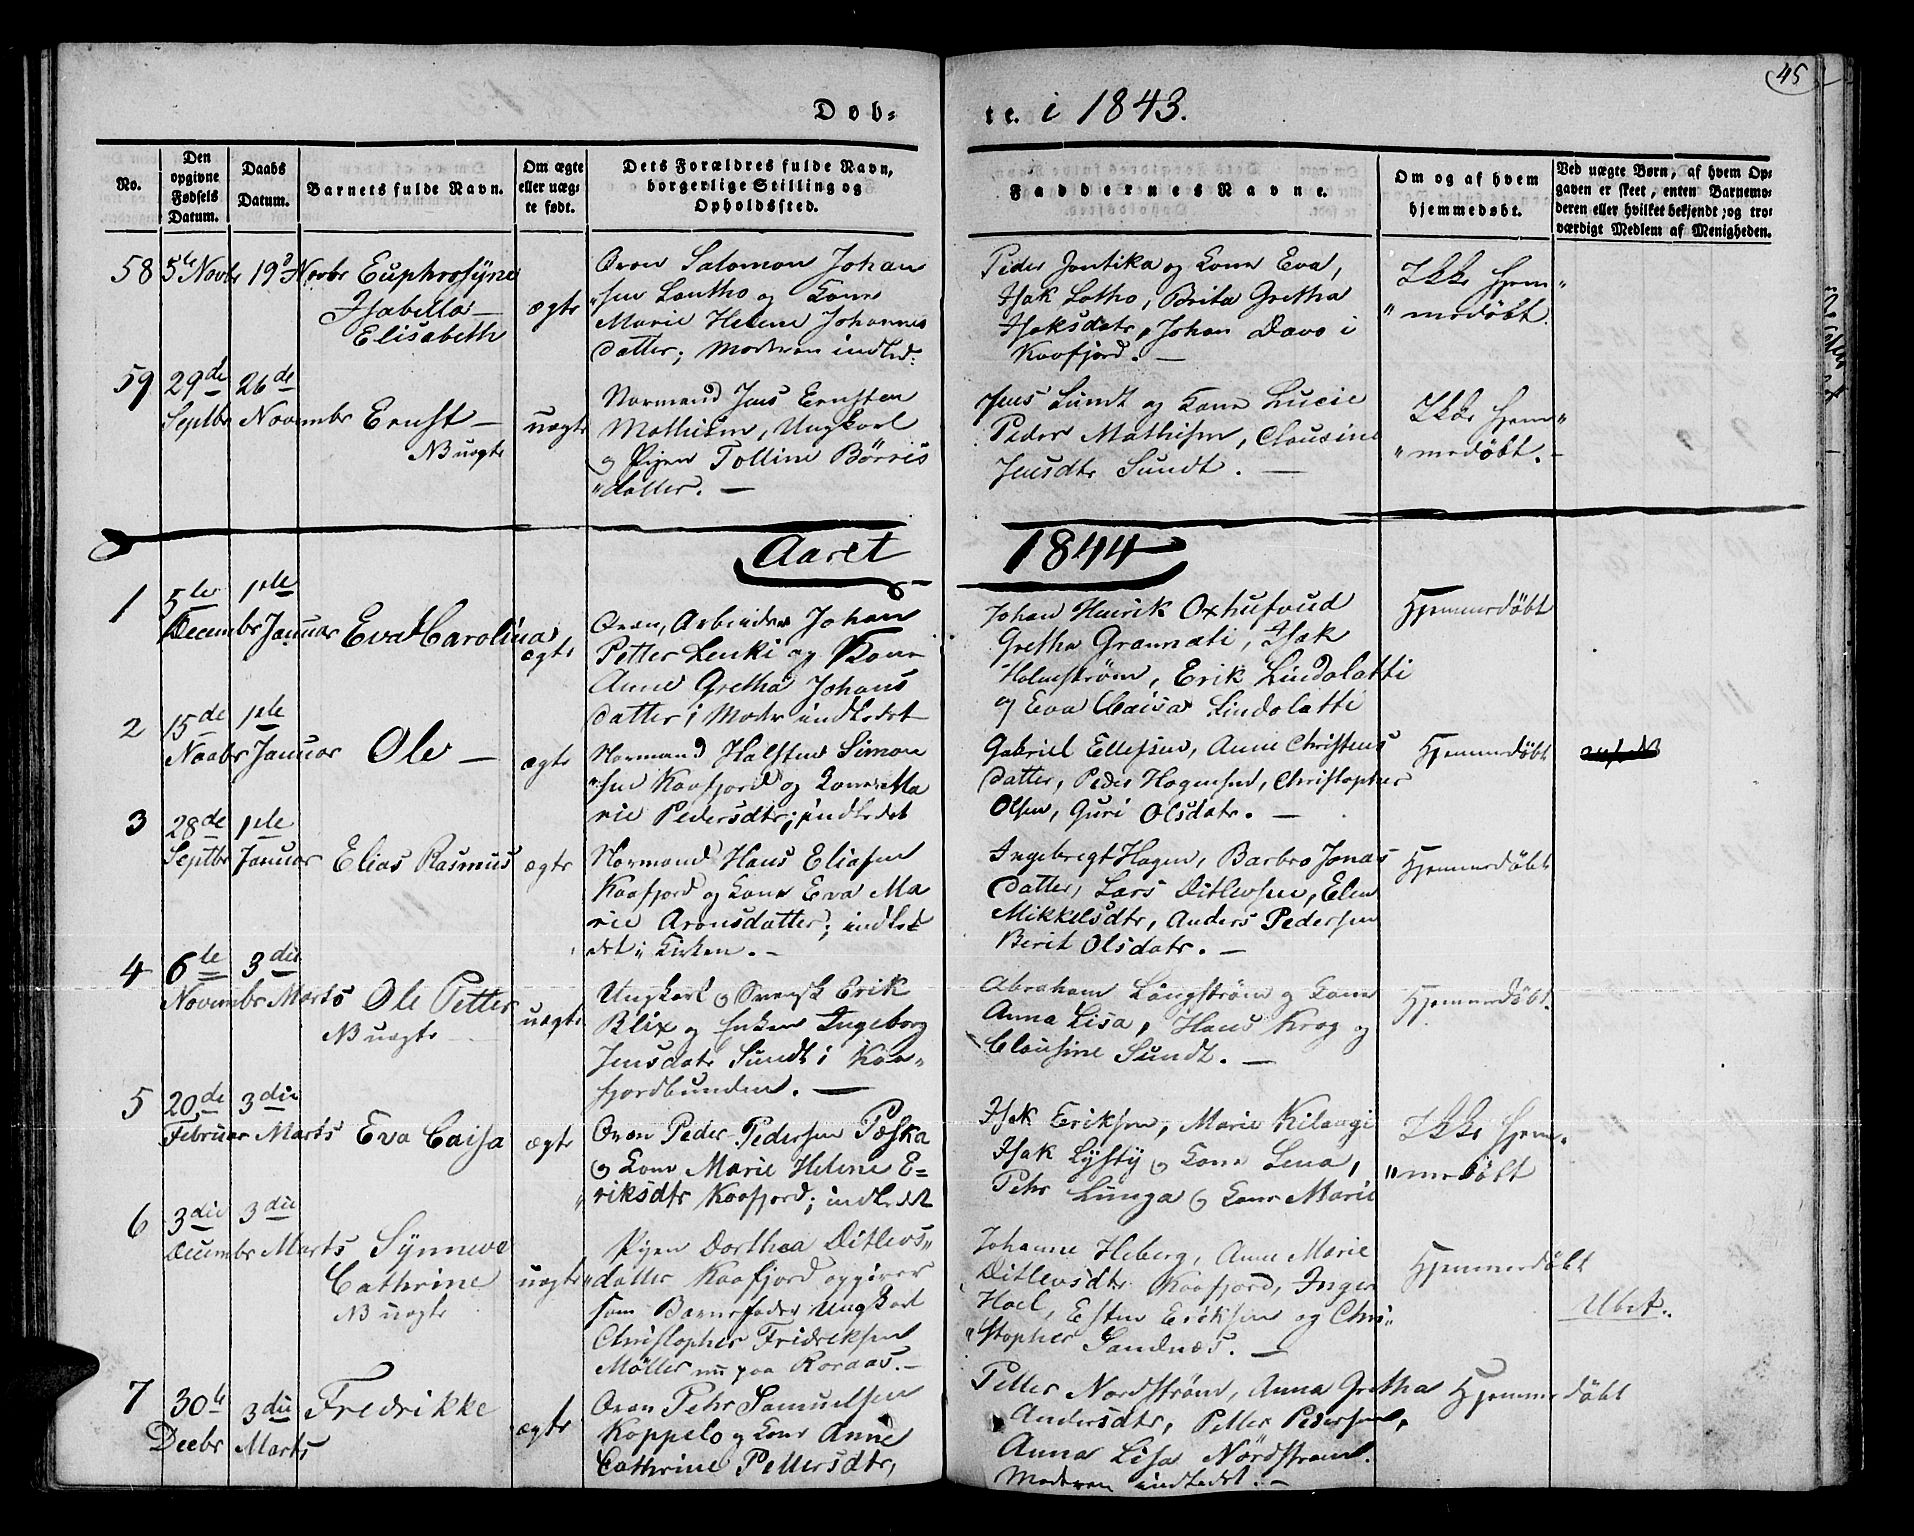 45
Døb=
te. i 1843.
No.
Den
opgivne
Fødsels
Datum.
Daabs
Datum.
Barnets fulde Navn.
Om ægte
eller uæg-
te født.
Dets Forældres fulde Navn,
borgerlige Stilling og
Opholdssted.
Faddernes Navne.
Om og af hvem
hjemmedøbt.
Ved uægte Børn, af hvem Op-
gaven er skeet, enten Barnemo-
deren eller hvilket bekjendt og tro-
værdigt Medlem af Menigheden.
58
5te Novbr
19de Novbr
Euphrosyne
Isabella
Elisabeth
ægte
Qvæn Salomon Johan
"sen Lantho og Kone
Marie Helene Johannes
datter; Moderen indled:
Peder Jontika og Kone Eva,
Isak Lotho, Brita Gretha
Isaksdatr, Johan Davo i
Kaafjord. —
Ikke Hjem"
"medøbt.
59
29de
Septbr
26de
Novembr
Ernst —
NB uægte
uægte
Normand Jens Ernsten
Mathisen, Ungkarl
og Pigen Tolline Børres
"datter. —
Jens Sundt og Kone Lucie
Peder Mathisen, Clausine
Jensdtr Sundt. —
Ikke Hjem"
"medøbt. —
Aaret
1844
1
5te
Decembr
1ste
Januar
Eva Carolina
ægte
Qvæn, Arbeider Johan
Petter Lenki og Kone
Anne Gretha Johans
datter; Moder indledet
Johan Henrik Oxhufvud
Gretha Grannati, Isak
Holmstrøm, Erik Lindolatti
og Eva Caisa Lindolatti
Hjemmedøbt
2
15de
Novbr
1ste
Januar
Ole —
ægte
Normand Halsten Simon
"sen Kaafjord og Kone Ma
rie Pedersdtr; indledet
Gabriel Ellefsen, Anne Christens
datter, Peder Hagensen, Christopher
Olsen, Guri Olsdatr. —
Hjemmedøbt
3
28de
Septbr
1ste
Januar
Elias Rasmus
ægte
Normand Hans Eliasen
Kaafjord og Kone Eva Ma
rie Aronsdatter; indle
det i Kirken. —
Ingebregt Hagen, Barbro Jonas
datter, Lars Ditlevsen, Elen
Mikkelsdtr, Anders Pedersen
Berit Olsdatr. —
Hjemmedøbt
4
6te
Novembr
3die
Marts
Ole Petter
NB uægte
uægte
Ungkarl og Svensk Erik
Blix og Enken Ingeborg
Jensdatr Sundt i Kaa-
fjordbunden. —
Abraham Långstrøm og Kone
Anna Lisa, Hans Krog og
Clausine Sundt. —
Hjemmedøbt.
5
20de
Februar
3die
Marts
Eva Caisa
ægte
Qvæn Peder Pedersen Pæska
og Kone Marie Helene E=
"riksdtr Kaafjord; indledet
Isak Eriksen, Marie Kilangi
Isak Lysty og Kone Lena,
Pehr Lunga og Kone Marie
Ikke Hjem-
"medøbt
6
3die
Decembr
3die
Marts
Synneve
Cathrine
NB uægte
uægte
Pigen Dorthea Ditlevs"
"datter Kaafjord opgiver
som Barnefader Ungkarl
Christopher Fridriksen
Møller nu paa Roraas. —
Johanne Heberg, Anne Marie
Ditlevsdtr Kaafjord, Inger
Hoel, Esten Eriksen og Chri-
"stopher Sandnæs. —
Hjemmedøbt
Ubet.
7
30te
Decbr
3die
Marts
Fredrikke
ægte
Qvæn Pehr Samuelsen
Koppelo og Kone Anne
Cathrine Pettersdtr,
Petter Nordstrøm, Anna Gretha
Andersdtr, Petter Pedersen,
Anna Lisa Nordstrøm.
Moderen indledet. —
Hjemmedøbt